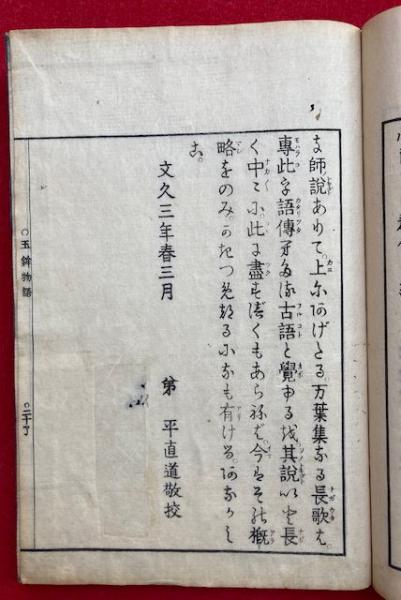 師説ありて。上にあげたる万葉集なる長歌は。
專此字語傳來たる古語と覺ゆるを。其説いと長
く中〻に此に盡すべくもあらねば。今はその概
略をのみ。かきつめたるになも有ける。あなかし
こ。
文久三年春三月
弟 平直道敬校
○玉鉾物語
○二十丁